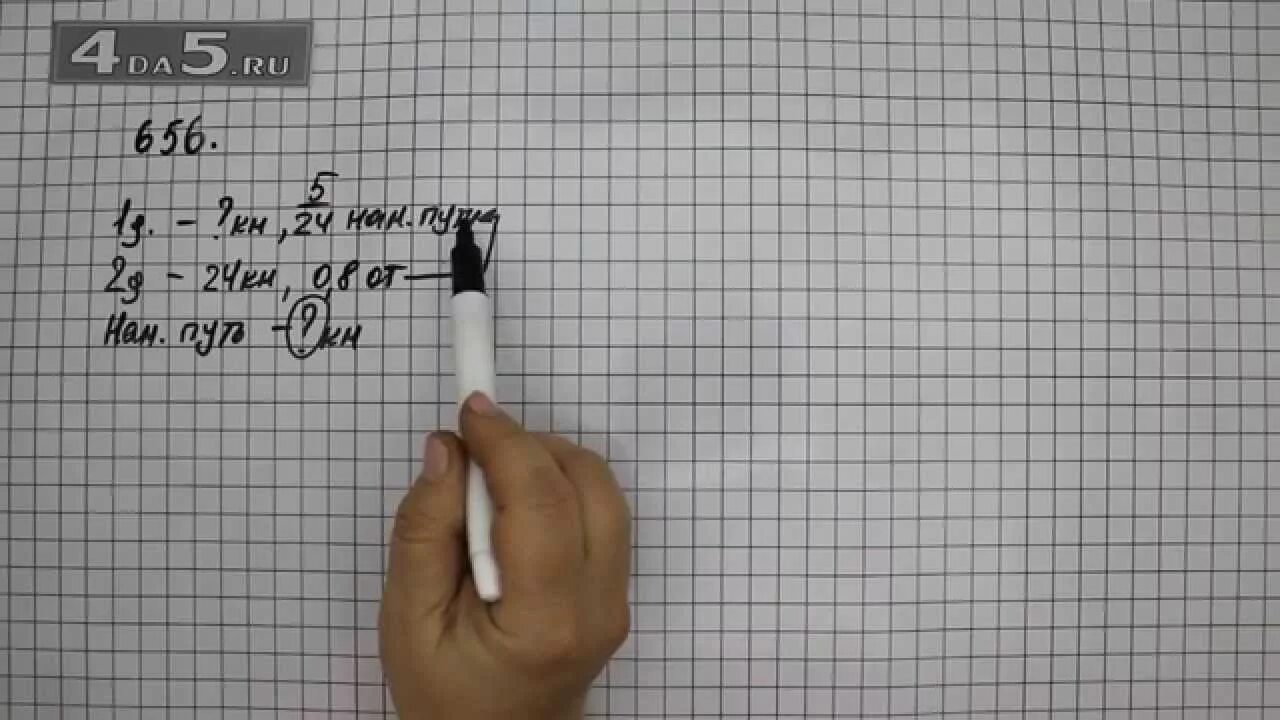 4DA5.RU
656.
1д. - ? км, 5/24 нам. пути
2д - 24 км, 0,8 от
Нам. путь - ? км